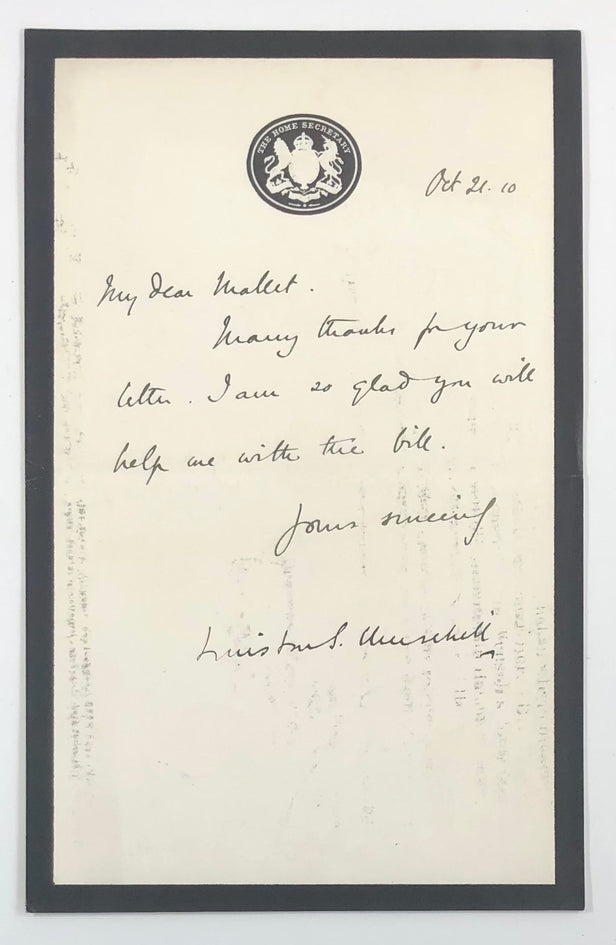 THE HOME SECRETARY
Oct 21. 10
My dear Mallet.
Many thanks for your
letter. I am so glad you will
help me with the bill.
Yours sincerely
Winston S. Churchill